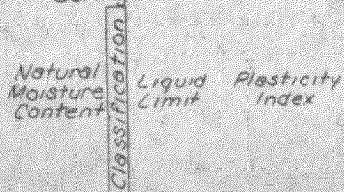 Natural
Moisture
Content
Classification
Liquid
Limit
Plasticity
Index